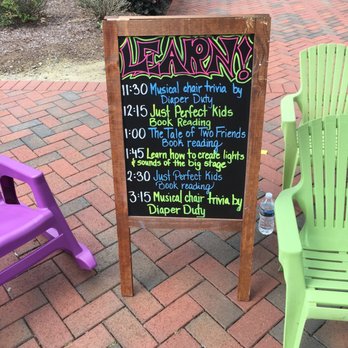 LEARN!
11:30 Musical chair trivia by
Diaper Duty
12:15 Just Perfect Kids
Book Reading
1:00 The Tale of Two Friends
Book reading
1:45 Learn how to create lights
& sounds of the big stage
2:30 Just Perfect Kids
Book reading
3:15 Musical chair trivia by
Diaper Duty